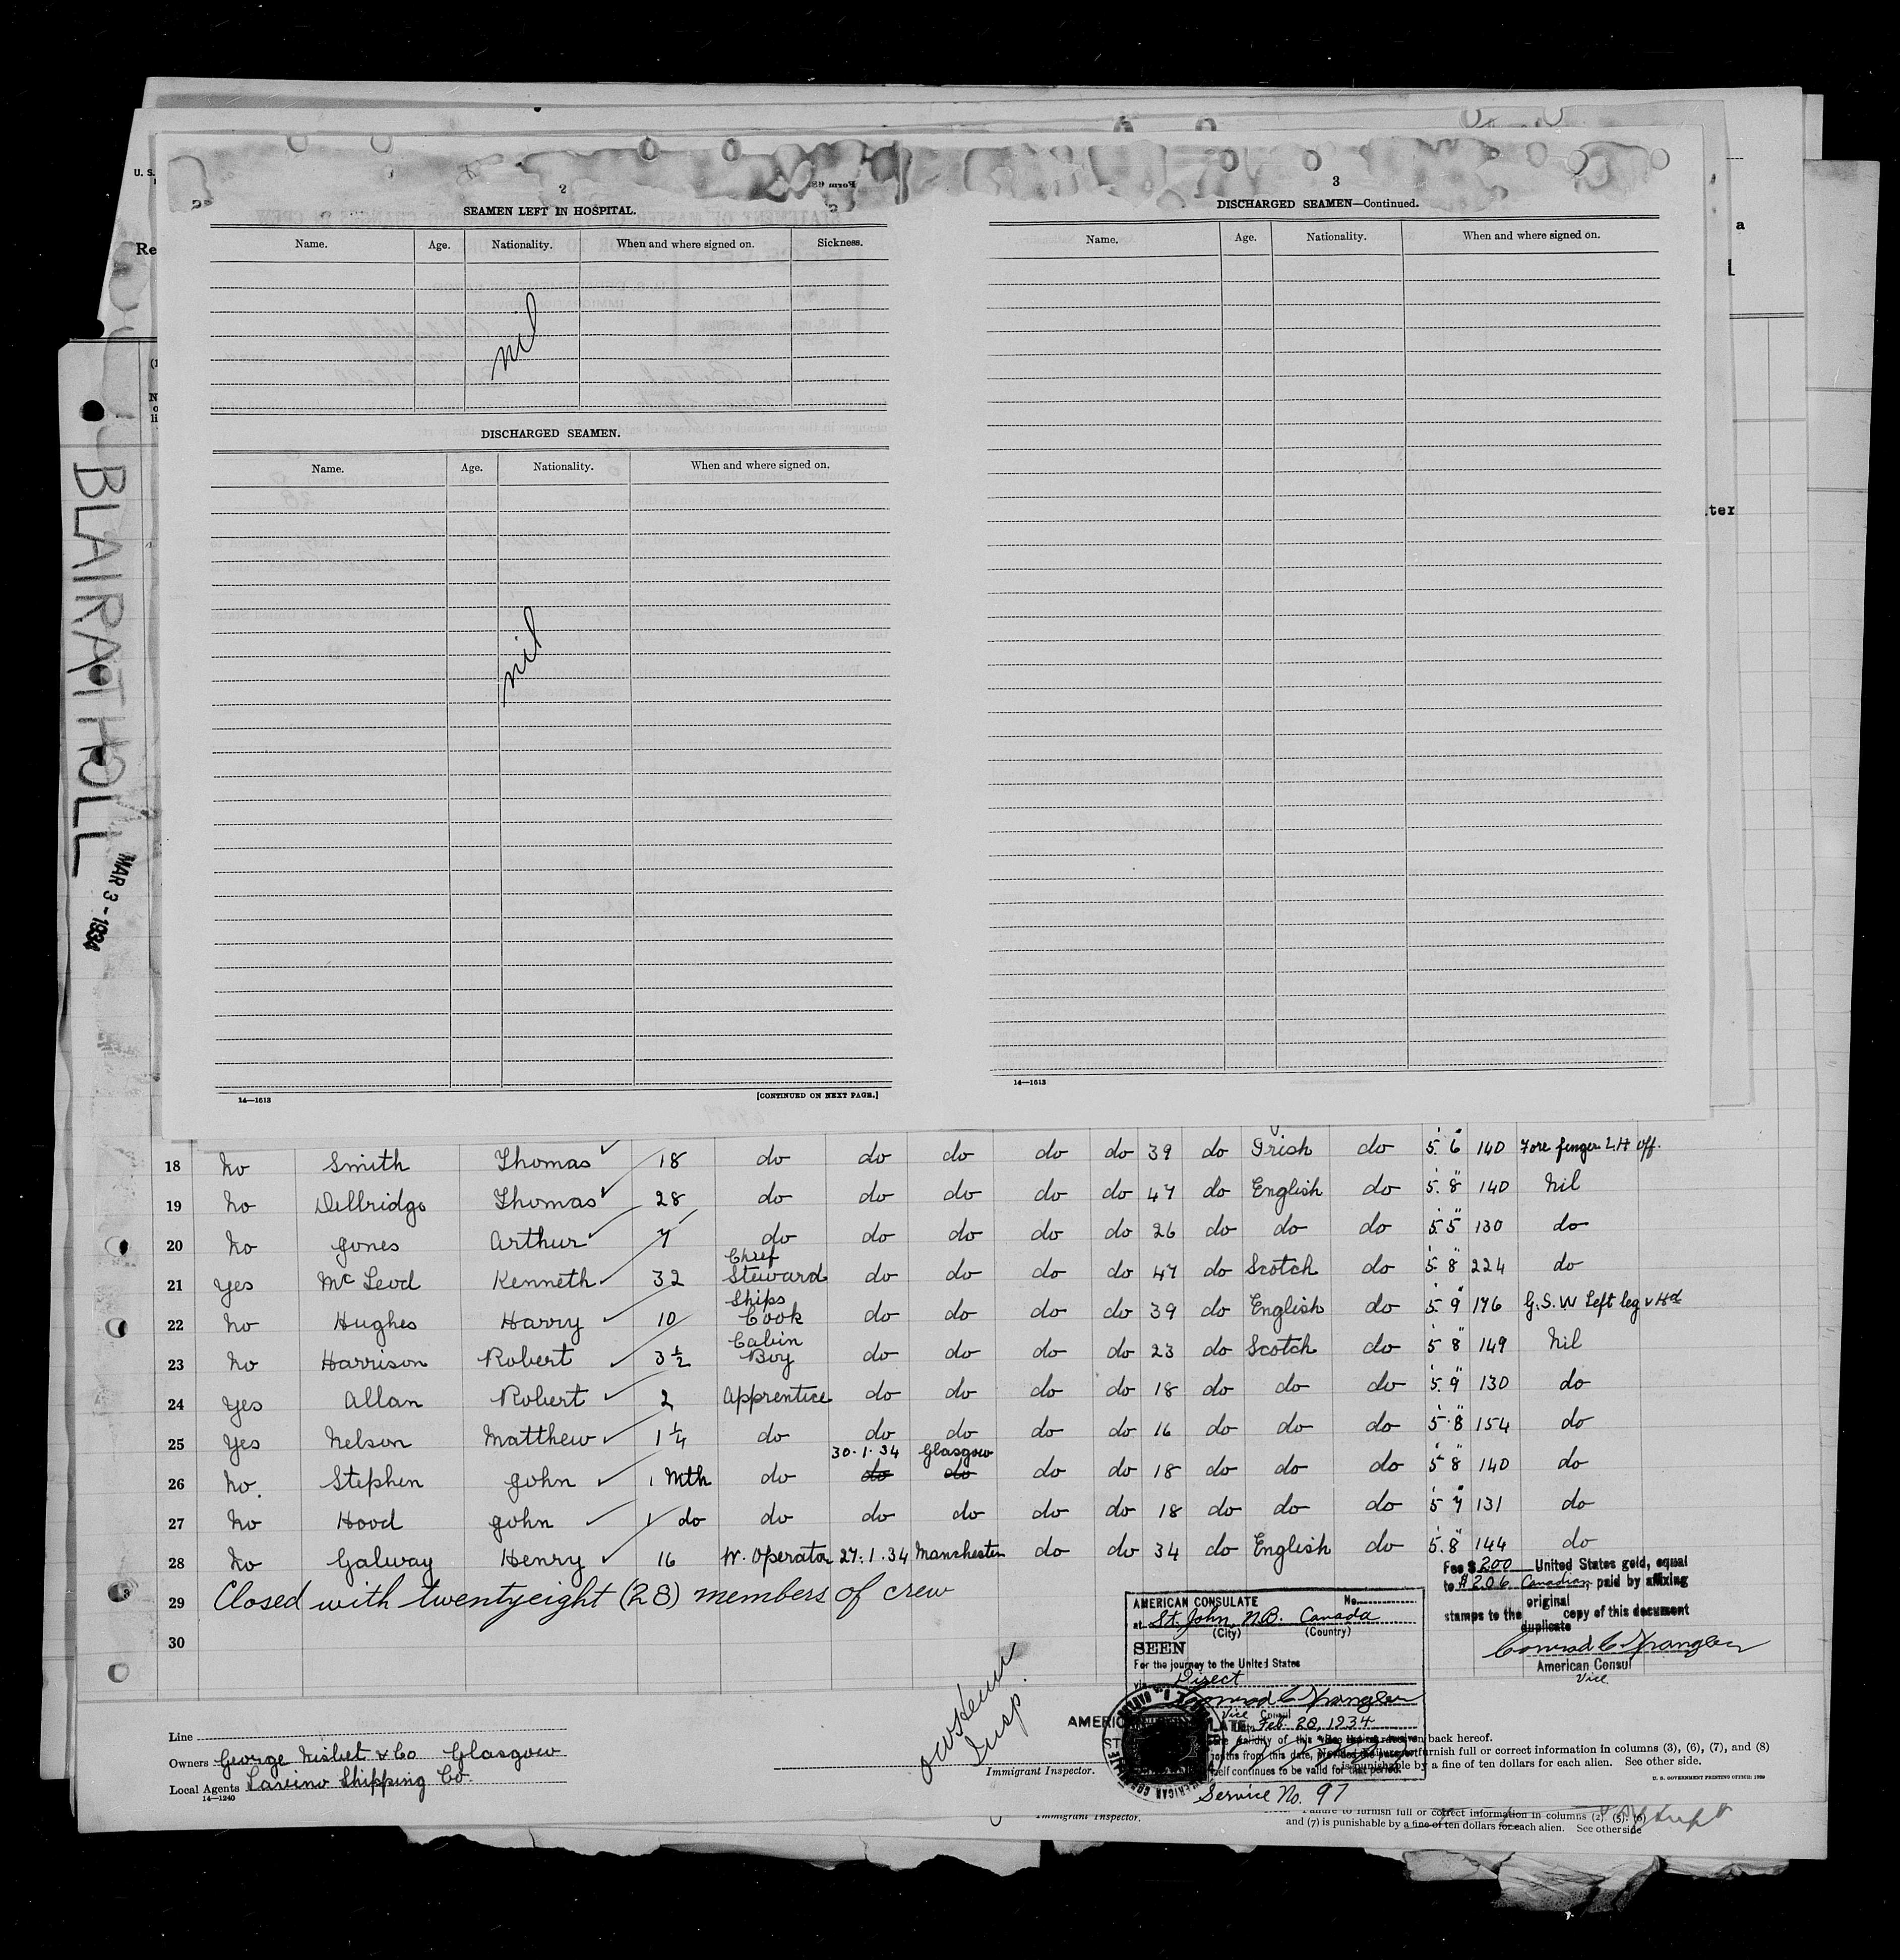 2
SEAMEN LEFT IN HOSPITAL.
Name. Age. Nationality. When and where signed on. Sickness.
nil
DISCHARGED SEAMEN.
Name. Age. Nationality. When and where signed on.
nil
14—1613
[CONTINUED ON NEXT PAGE.]
3
DISCHARGED SEAMEN—Continued.
Name. Age. Nationality. When and where signed on.
14—1613
U. S.
Re
a
ter
BLAIRATHOLL
MAR 3 - 1934
18 No Smith Thomas 18 do do do do do 39 do Irish do 5. 6 140 Fore finger L.H off.
19 No Dellridge Thomas 28 do do do do do 47 do English do 5. 8 140 Nil
20 No Jones Arthur 7 do do do do do 26 do do do 5. 5 130 do
21 Yes McLeod Kenneth 32 Chief Steward do do do do 47 do Scotch do 5 8 224 do
22 No Hughes Harry 10 Ships Cook do do do do 39 do English do 5. 9 176 G.S.W Left leg & Hd
23 No Harrison Robert 3½ Cabin Boy do do do do 23 do Scotch do 5 8 149 Nil
24 Yes Allan Robert 2 Apprentice do do do do 18 do do do 5. 9 130 do
25 Yes Nelson Matthew 1¼ do do do do do 16 do do do 5. 8 154 do
26 No. Stephen John 1 Mth do 30.1.34 do Glasgow do do do 18 do do do 5 8 140 do
27 No Hood John 1 do do do do do do 18 do do do 5 7 131 do
28 No Galway Henry 16 W. Operator 27.1.34 Manchester do do 34 do English do 5. 8 144 do
29 Closed with twentyeight (28) members of crew
30
Fee $ 200 United States gold, equal
to $ 2.06 Canadian paid by affixing
stamps to the original duplicate copy of this document
Conrad C. Spangler
American Consul
Vice
AMERICAN CONSULATE No.
at St. John, N.B. Canada
(City) (Country)
SEEN
For the journey to the United States
via Direct
Conrad C. Spangler
Vice Consul
Date Feb. 28, 1934
Service No. 97
Insp.
Immigrant Inspector.
Line
Owners George Nisbet & Co Glasgow
Local Agents Lavino Shipping Co.
14—1240
back hereof.
furnish full or correct information in columns (3), (6), (7), and (8)
is punishable by a fine of ten dollars for each alien. See other side.
U. S. GOVERNMENT PRINTING OFFICE: 1929
Immigrant Inspector.
furnish full or correct information in columns (2), (5), (6)
and (7) is punishable by a fine of ten dollars for each alien. See other side